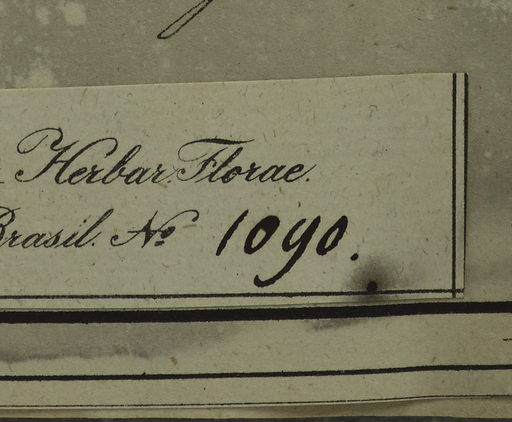 Herbar. Florae
Brasil. No 1090.